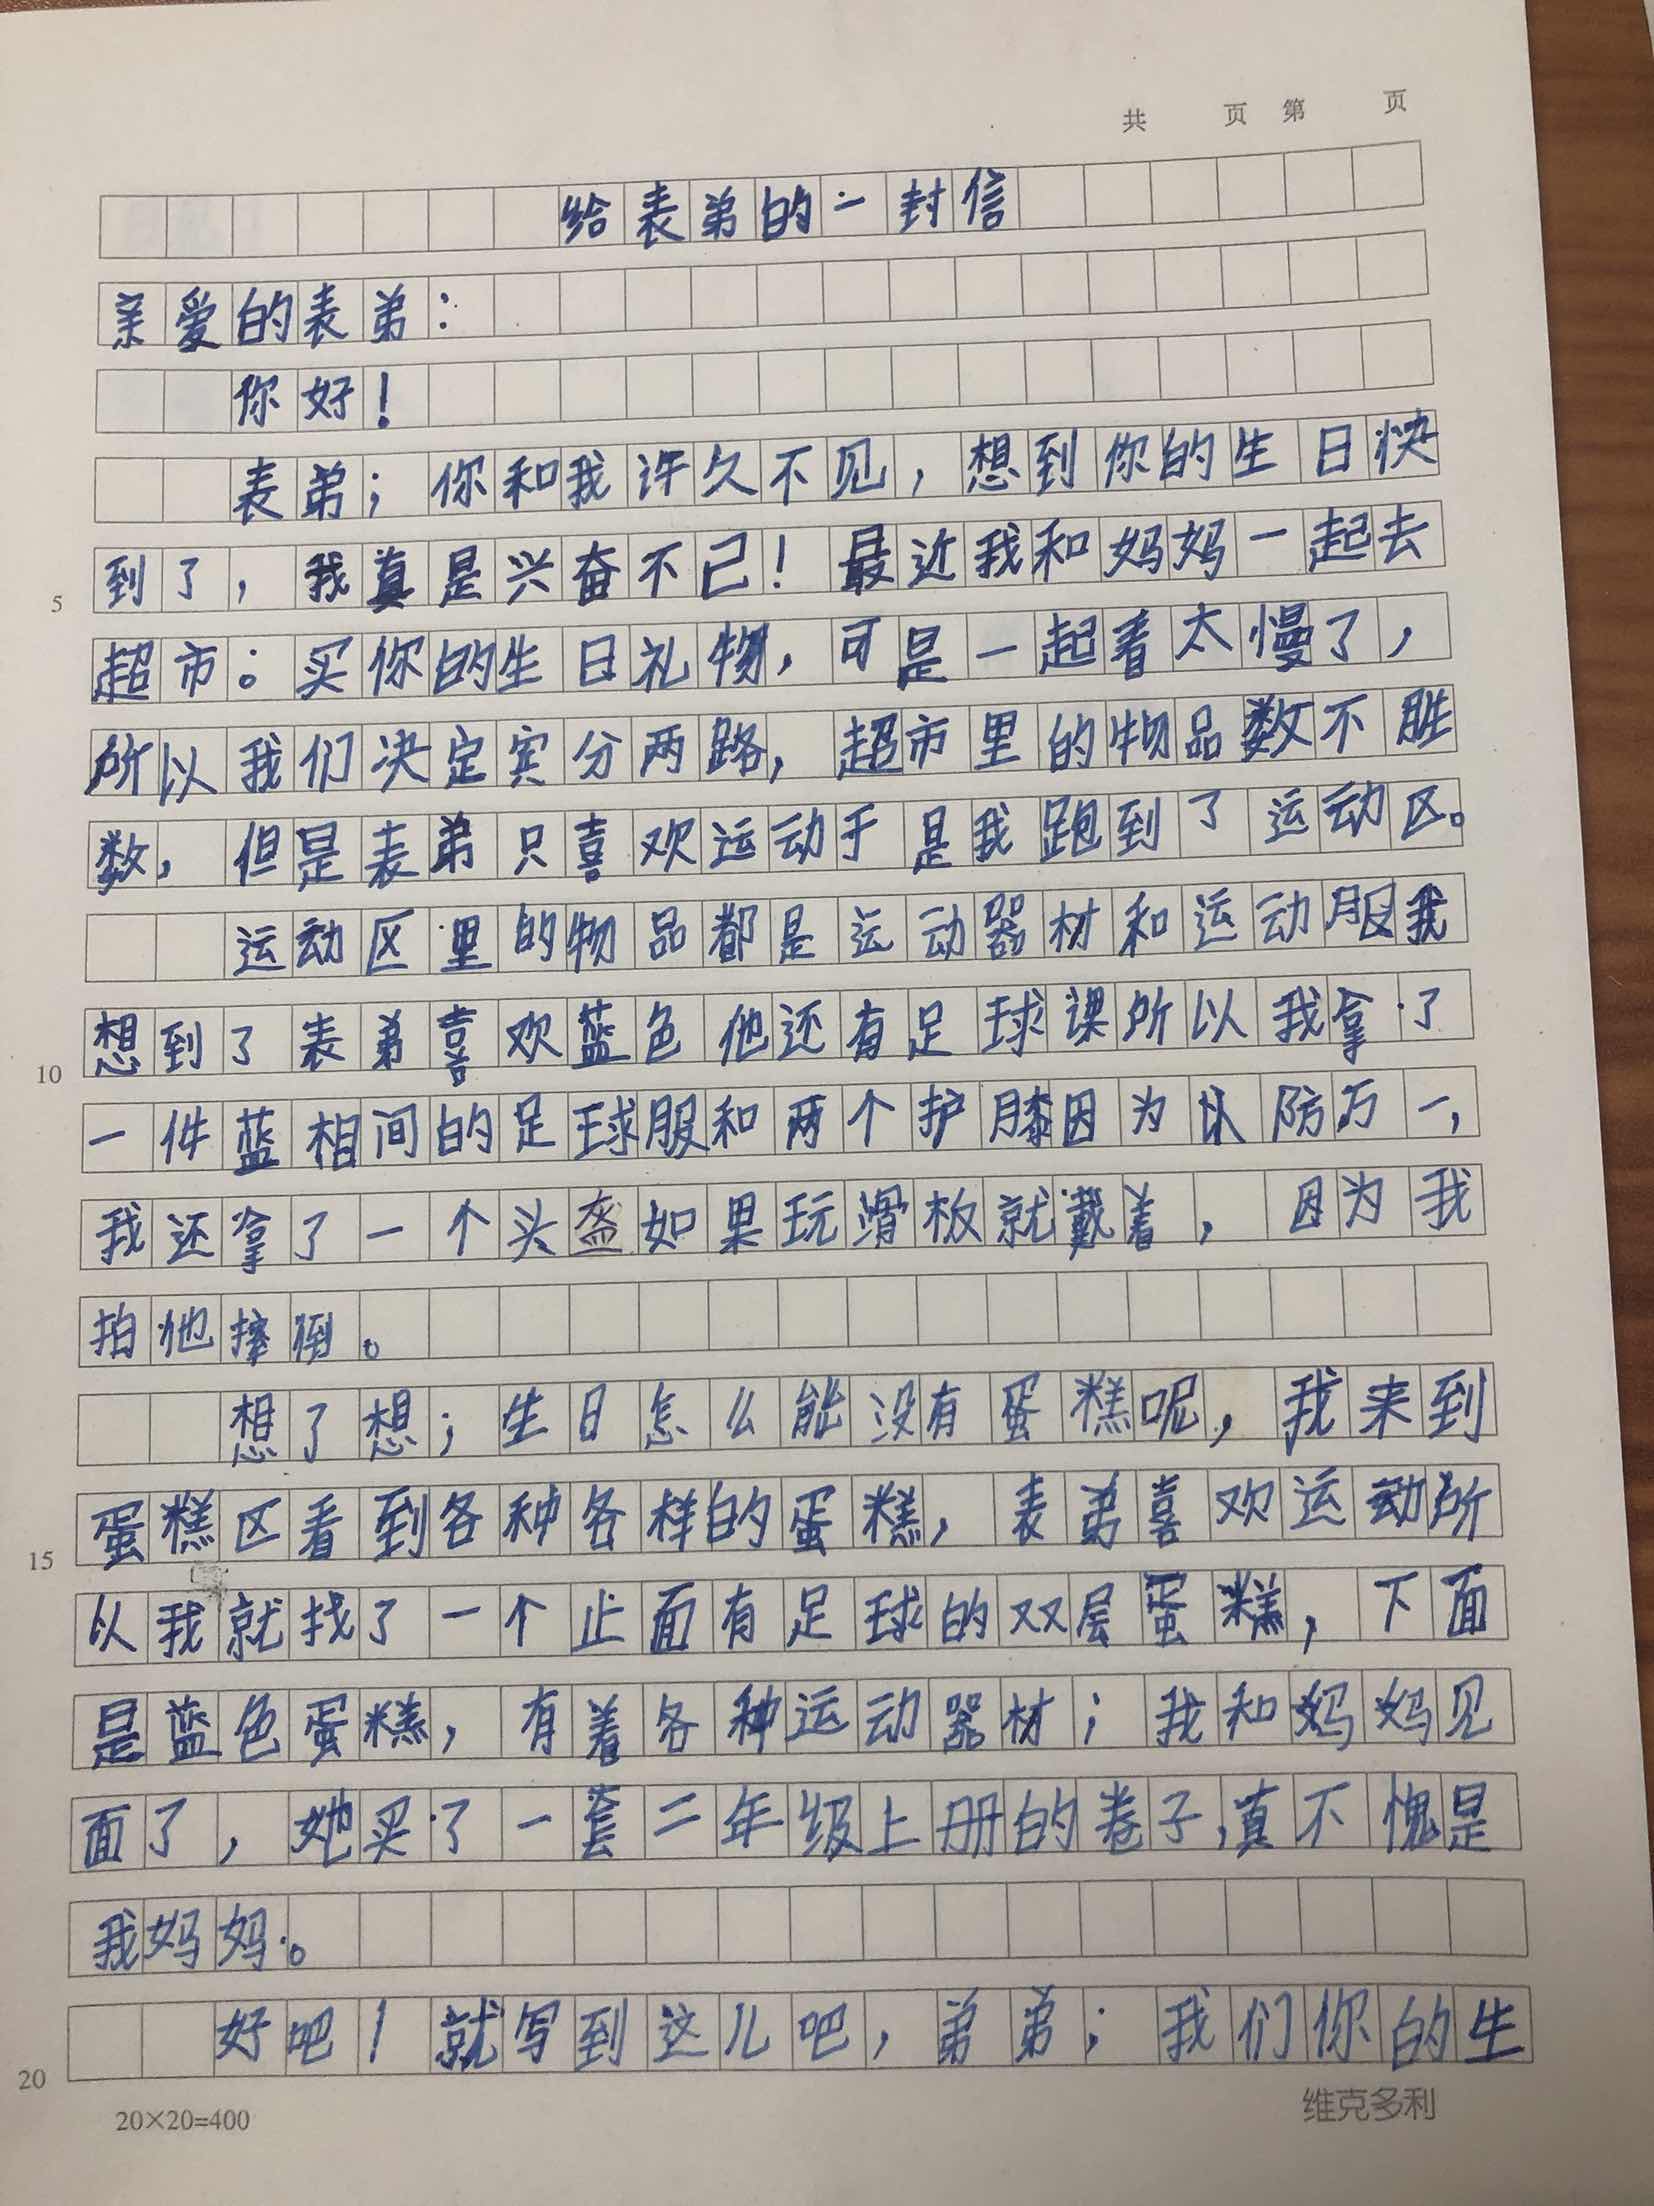 共 页 第 页
给表弟的一封信
亲爱的表弟：
你好！
表弟；你和我许久不见，想到你的生日快
到了，我真是兴奋不已！最近我和妈妈一起去
超市。买你的生日礼物，可是一起看太慢了，
所以我们决定宾分两路，超市里的物品数不胜
数，但是表弟只喜欢运动于是我跑到了运动区。
运动区里的物品都是运动器材和运动服我
想到了表弟喜欢蓝色他还有足球课所以我拿了
一件蓝相间的足球服和两个护膝因为以防万一，
我还拿了一个头盔如果玩滑板就戴着，因为我
拍他摔倒。
想了想；生日怎么能没有蛋糕呢，我来到
蛋糕区看到各种各样的蛋糕，表弟喜欢运动所
以我就找了一个止面有足球的双层蛋糕，下面
是蓝色蛋糕，有着各种运动器材；我和妈妈见
面了，她买了一套二年级上册的卷子，真不愧是
我妈妈。
好吧！就写到这儿吧，弟弟；我们你的生
5
10
15
20
20×20=400
维克多利